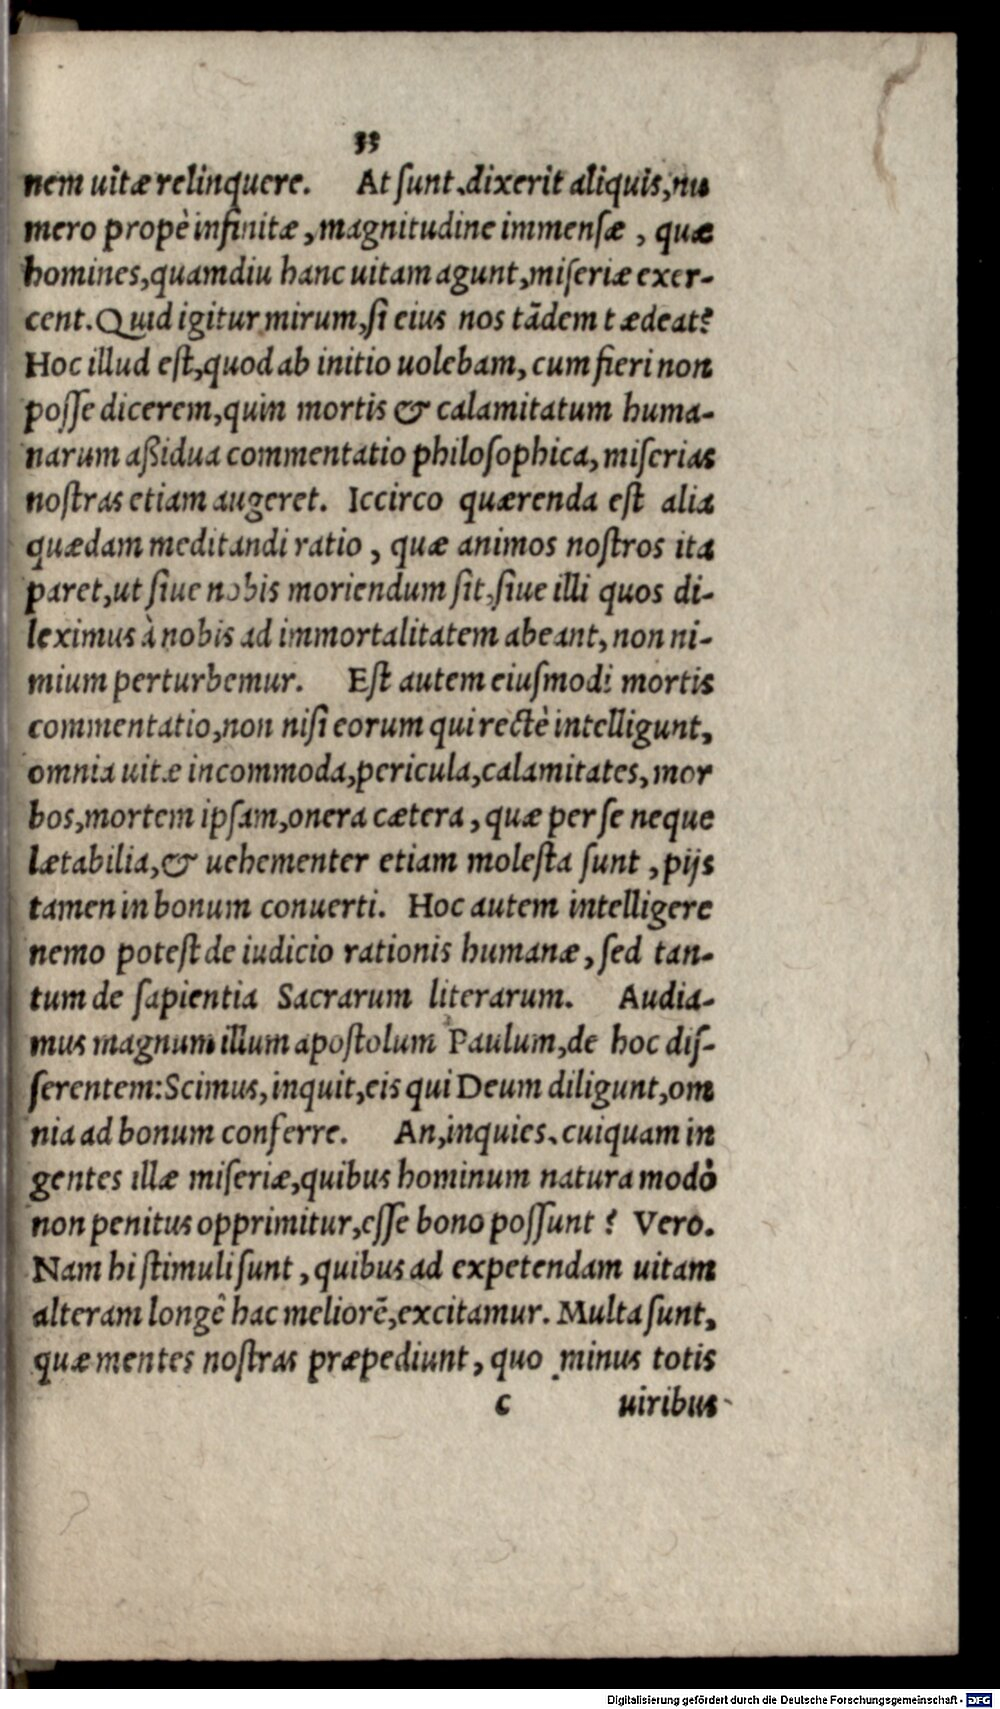 33
nem uitæ relinquere. At sunt, dixerit aliquis, nu
mero propè infinitæ, magnitudine immensæ, quæ
homines, quamdiu hanc uitam agunt, miseriæ exer-
cent. Quid igitur mirum, si eius nos tãdem tædeat?
Hoc illud est, quod ab initio uolebam, cum fieri non
posse dicerem, quin mortis & calamitatum huma-
narum aßidua commentatio philosophica, miserias
nostras etiam augeret. Iccirco quærenda est alia
quædam meditandi ratio, quæ animos nostros ita
paret, ut siue nobis moriendum sit, siue illi quos di-
leximus à nobis ad immortalitatem abeant, non ni-
mium perturbemur. Est autem eiusmodi mortis
commentatio, non nisi eorum qui rectè intelligunt,
omnia uitæ incommoda, pericula, calamitates, mor
bos, mortem ipsam, onera cætera, quæ per se neque
lætabilia, & uehementer etiam molesta sunt, pijs
tamen in bonum conuerti. Hoc autem intelligere
nemo potest de iudicio rationis humanæ, sed tan-
tum de sapientia Sacrarum literarum. Audia-
mus magnum illum apostolum Paulum, de hoc dis-
serentem: Scimus, inquit, eis qui Deum diligunt, om
nia ad bonum conferre. An, inquies, cuiquam in
gentes illæ miseriæ, quibus hominum natura modò
non penitus opprimitur, esse bono possunt? Vero.
Nam hi stimuli sunt, quibus ad expetendam uitam
alteram longê hac meliorẽ, excitamur. Multa sunt,
quæ mentes nostras præpediunt, quo minus totis
c uiribus
Digitalisierung gefördert durch die Deutsche Forschungsgemeinschaft - DFG